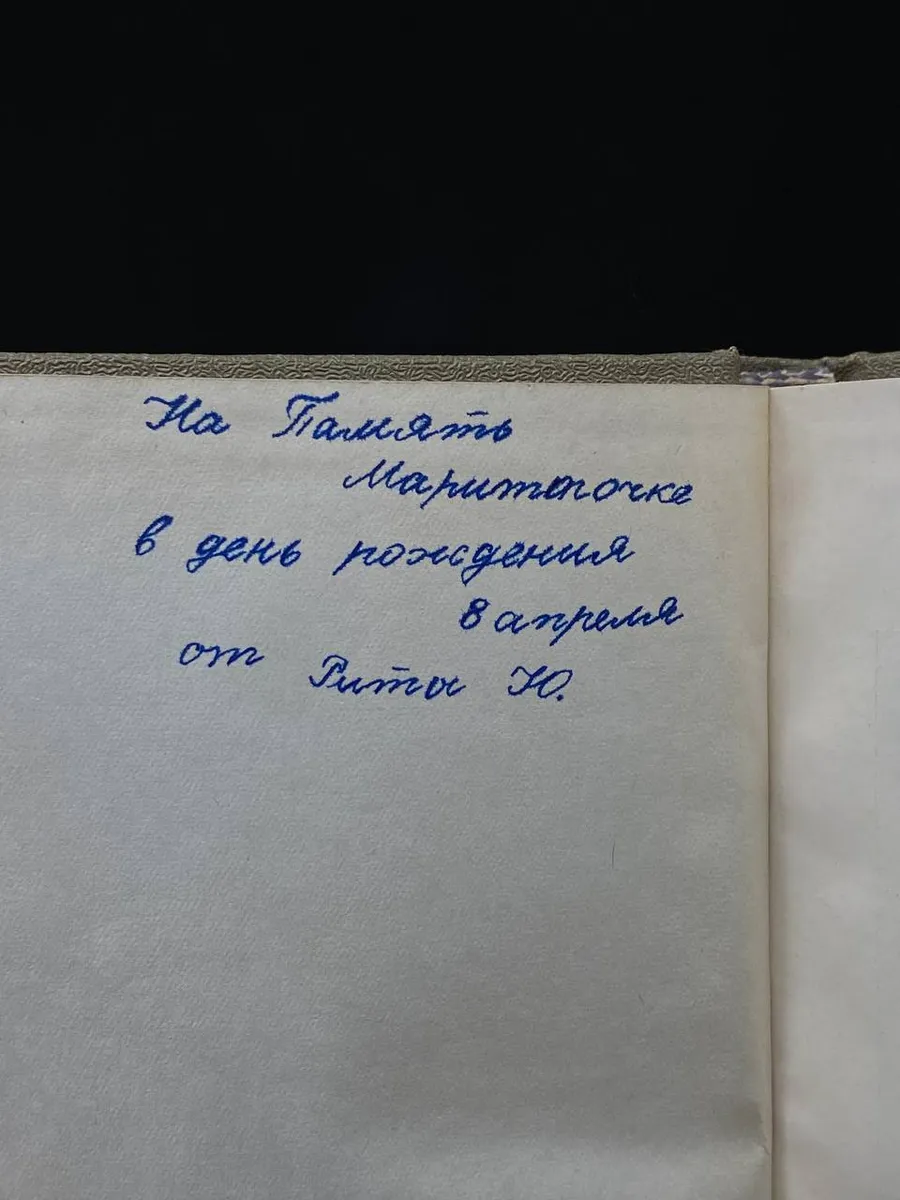 На Память
Маритопочке
в день рождения
8 апреля
от Риты Ю.